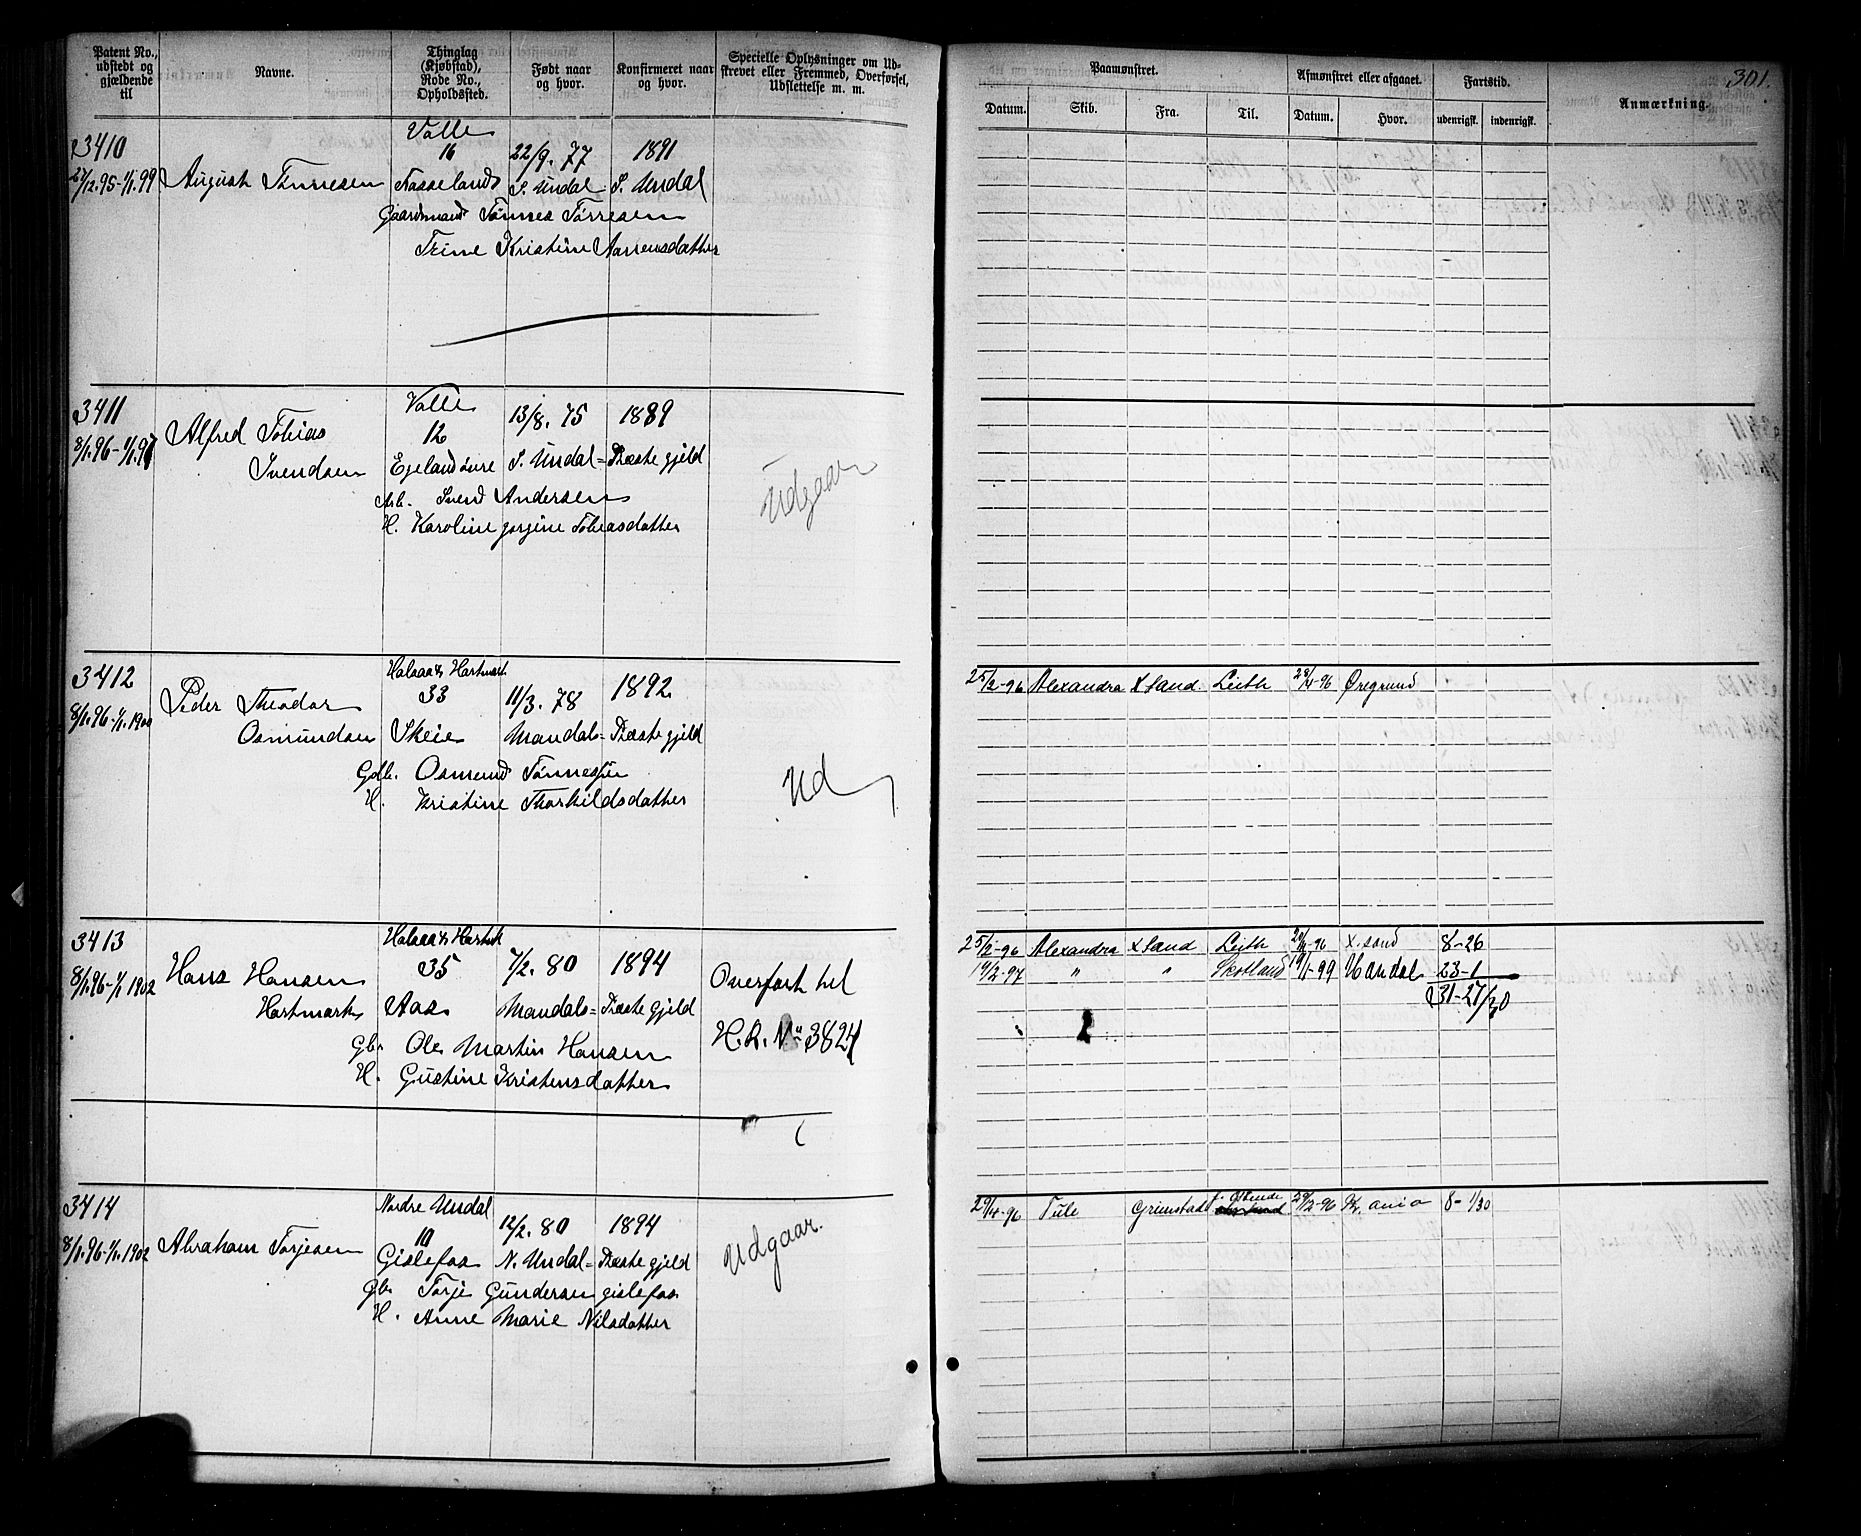 Patent No., udstedt og gjældende til
Navne.
Thinglag (Kjøbstad), Rode No., Opholdssted.
Født naar og hvor.
Konfirmeret naar og hvor.
Specielle Oplysninger om Udskrevet eller Fremmed, Overførsel, Udslettelse m. m.
Paamønstret.
Afmønstret eller afgaaet.
Fartstid.
Anmærkning.
301.
Datum.
Skib.
Fra.
Til.
Datum.
Hvor.
udenrigsk.
indenrigsk.
3410
Valle
16
22/9. 77
1891
27/12.95-1/1.99
August Tønnesen
S. Undal
S. Undal
Gaardmand Tønnes Tørresen
Trine Kristine Aanensdatter
3411
Valle
12
13/8. 75
1889
8/1.96-1/1.97
Alfred Tobias
Svendsen
Egeland övre
S. Undal=
Præstegjeld
Arb. Svend Andersen
H. Karoline Jorgine Tobiasdatter
Udgaar
3412
Halsaa & Hartmark
33
11/3. 78
1892
8/1.96-1/1.1900
Peder Theodor
Osmundsen
Skeie
Mandals=
Præstegjeld
Gdb. Osmund Tønnessen
H. Kristine Thorkildsdatter
Ud
25/2-96 Alexandra X Sand. Leith 29/4-96 Øregrund
3413
Halsaa & Hartmk
35
7/2. 80
1894
8/1.96-1/1.1902
Hans Hansen
Hartmark
Aas
Mandals=
Præstegjeld
Gbr. Ole Martin Hansen
H. Gustine Kristensdatter
Overført til
H.R. No 3824
25/2-96 Alexandra X Sand Leith X.sand 8-26
14/2-97 " " Skotland 19/1-99 Mandal 23-1
31-27/30
3414
Nordre Undal
10
12/2. 80
1894
8/1.96-1/1.1902
Abraham Torjesen
Gislefos
N. Undal=
Præstegjeld
Gbr. Torje Gundersen Gislefos
H. Anne Marie Nilsdatter
Udgaar.
29/4-96 Tule Grimstad 29/12-96 8-1/30